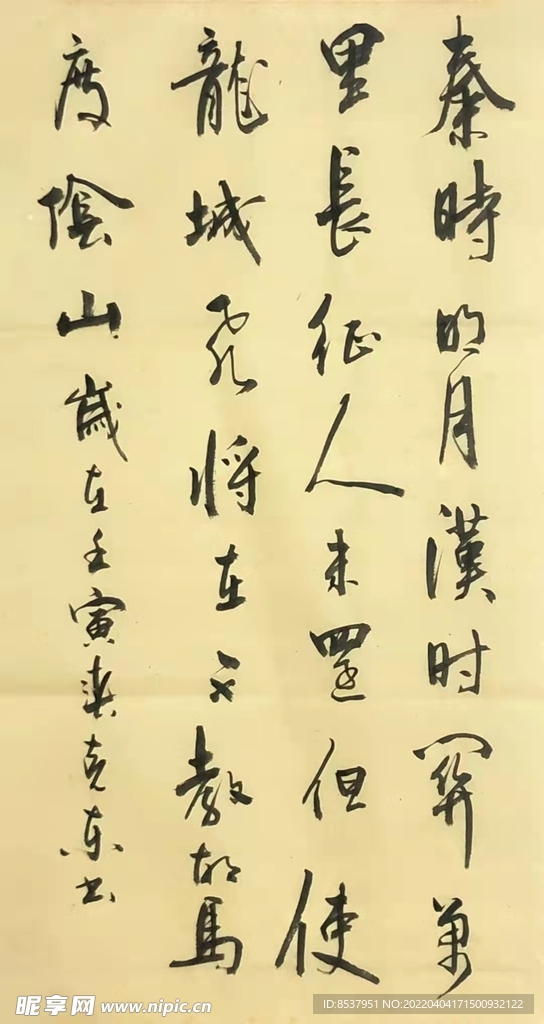 秦時明月漢时關萬
里長征人未還但使
龍城飛将在不教胡馬
度陰山歲在壬寅克东书
昵享网 www.nipic.cn
ID:8537951 NO:20220404171500932122